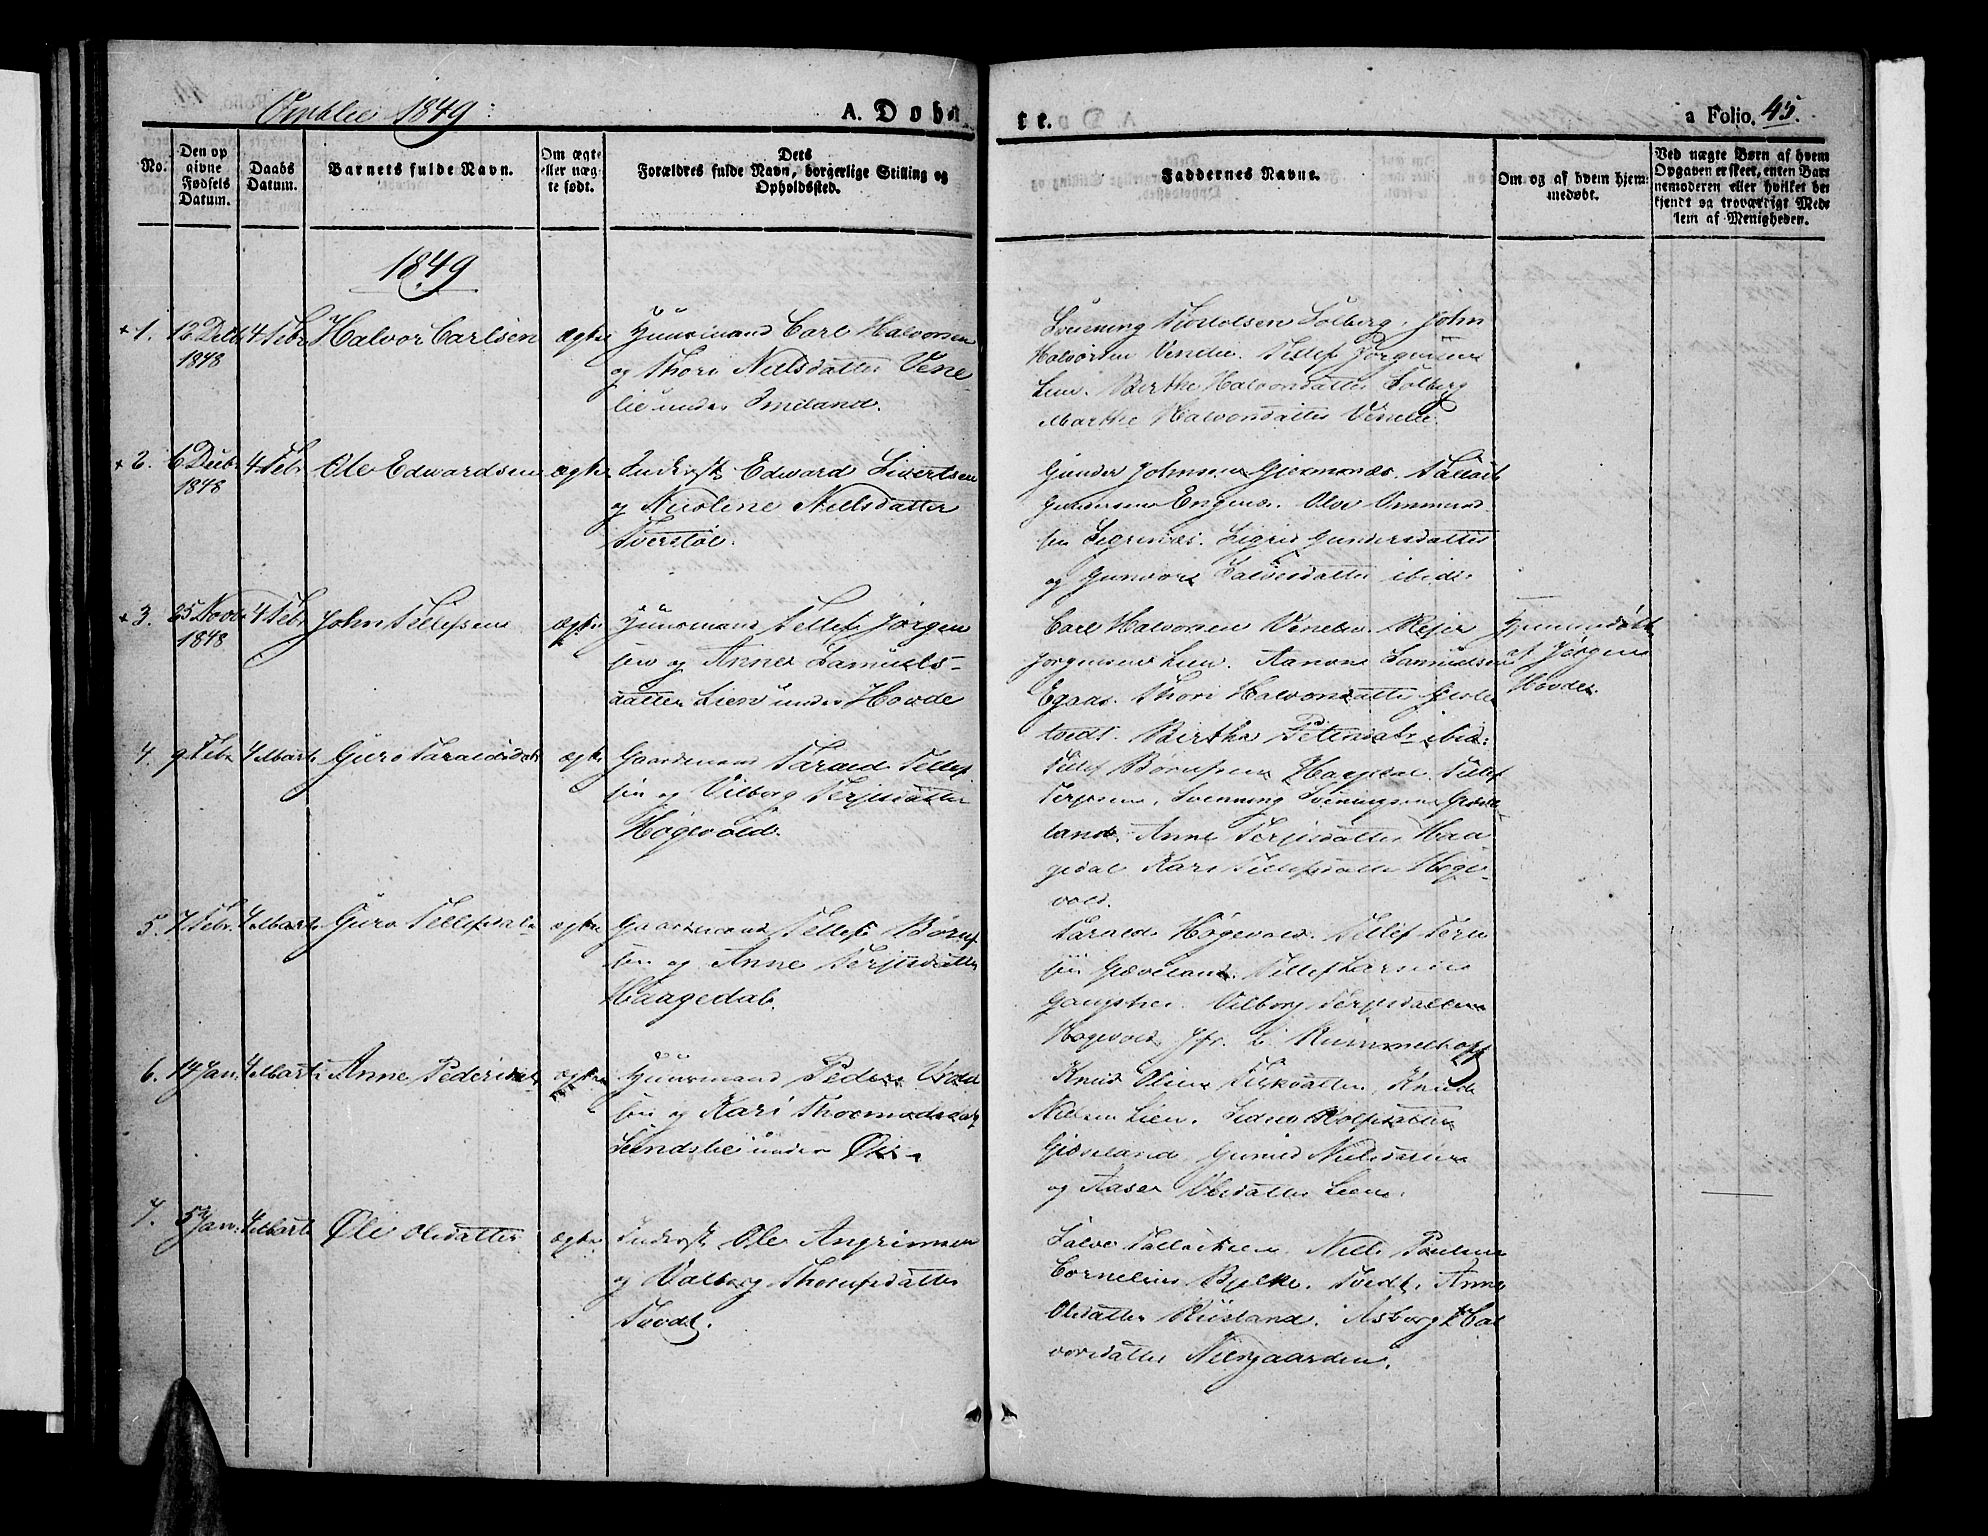 Omblie 1849.
A. Døbte.
a Folio. 45.
No.
Den op
givne
Fødsels
Datum.
Daabs
Datum.
Barnets fulde Navn.
Om ægte
eller uæg
te født.
Dets
Forældres fulde Navn, borgerlige Stilling og
Opholdssted.
Faddernes Navne.
Om og af hvem hjem:
medøbt.
Ved uægte Børn af hvem
Opgaven er skeet, enten Bar
nemoderen eller hvilket be
kjendt og troværdigt Med
lem af Menigheden.
1849
+ 1. 12 Decb 4 Febr Halvor Carlsen ægte Huusmand Carl Halvorsen
1848 og Thore Nielsdatter Vene
lie under Imeland.
Svenning Solberg. John
Halvorsen Venelie. Tellef Jørgensen
Lien. Birthe Halvorsdatter Solberg
Marthe Halvorsdatter Venelie.
+ 2. 6 Decbr 4 Febr Ole Edwardsen ægte Inderst Edward Sivertsen
1848 og Nicoline Nielsdatter
Tverstøl.
Gunder Johnsen Gjermonæs. Tallack
Gundersen Engenæs. Olve Ommund
sen Sigrinæs. Sigrid Gundersdatter
og Gunvor Salvesdatter ibid:
+ 3. 25 Novb 4 Febr John Tellefsen ægte Huusmand Tellef Jørgen
1848 sen og Anne Samuels-
datter Lien under Hovde
Carl Halvorsen Venelie. Rejer
Jørgensen Lien. Aanon Samuelsen
Egaas. Thori Halvorsdatter
tvedt. Birthe Petersdatr ibid:
Hjemmedøbt
af Jørgen
Hovde.
4. 9 Febr 4 Marts Guro Taraldsdatr ægte Gaardmand Tarald Tellef
sen og Vilborg Terjesdatter
Høgevold.
Tellef Børufsen Haagedal. Tellef
Terjesen. Svenning Svenningsen Gjæve
land. Anne Terjesdatter Haa
gedal Kari Tellefsdatter Høge-
vold.
5. 7 Febr 4 Marts Guro Tellefsdatr ægte Gaardmand Tellef Børuf
sen og Anne Terjesdatter
Haagedal.
Tarald Høgevold. Tellef Terje
sen Gjæveland. Tellef Larsen
Vilborg Terjesdatter
Høgevold Jfr. L. Rummelhoff
6. 14 Jan. 4 Marts Anne Pedersdatr ægte Huusmand Peder
sen og Kari
Lindslie under Øi
Knud Olsen Knud
Nielsen Lien. Rolfsdatter
Gjæveland Gunild Nielsdatter
og Aase Olesdatter Lien.
7. 5 Jan. 4 Marts Øli Olesdatter ægte Inderst Ole Angrimsen
og Valborg Thorufsdatter
Tvedt.
Salve Tallacksen Niels Poulsen
Cornelius Bjelke. Tvedt. Anne
Olesdatter Risland. Asborg Hal
vorsdatter Neergaarden.